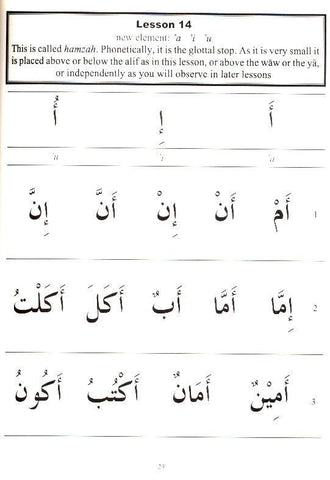 Lesson 14
new element: 'a 'i 'u
This is called hamzah. Phonetically, it is the glottal stop. As it is very small it
is placed above or below the alif as in this lesson, or above the wāw or the yā,
or independently as you will observe in later lessons
أَ إِ أُ
'a 'i 'u
أَمْ أَنْ إِنْ أَنَّ إِنَّ 1
إِمَّا أَمَّا أَبٌ أَكَلَ أَكَلْتُ 2
أَمِيْنٌ أَمَانٌ أَكْتُبُ أَكُونُ 3